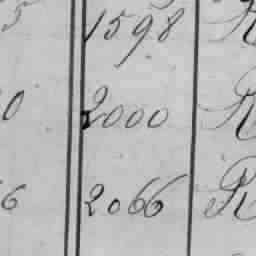 5 1598 R
0 2000 R
6 2066 R